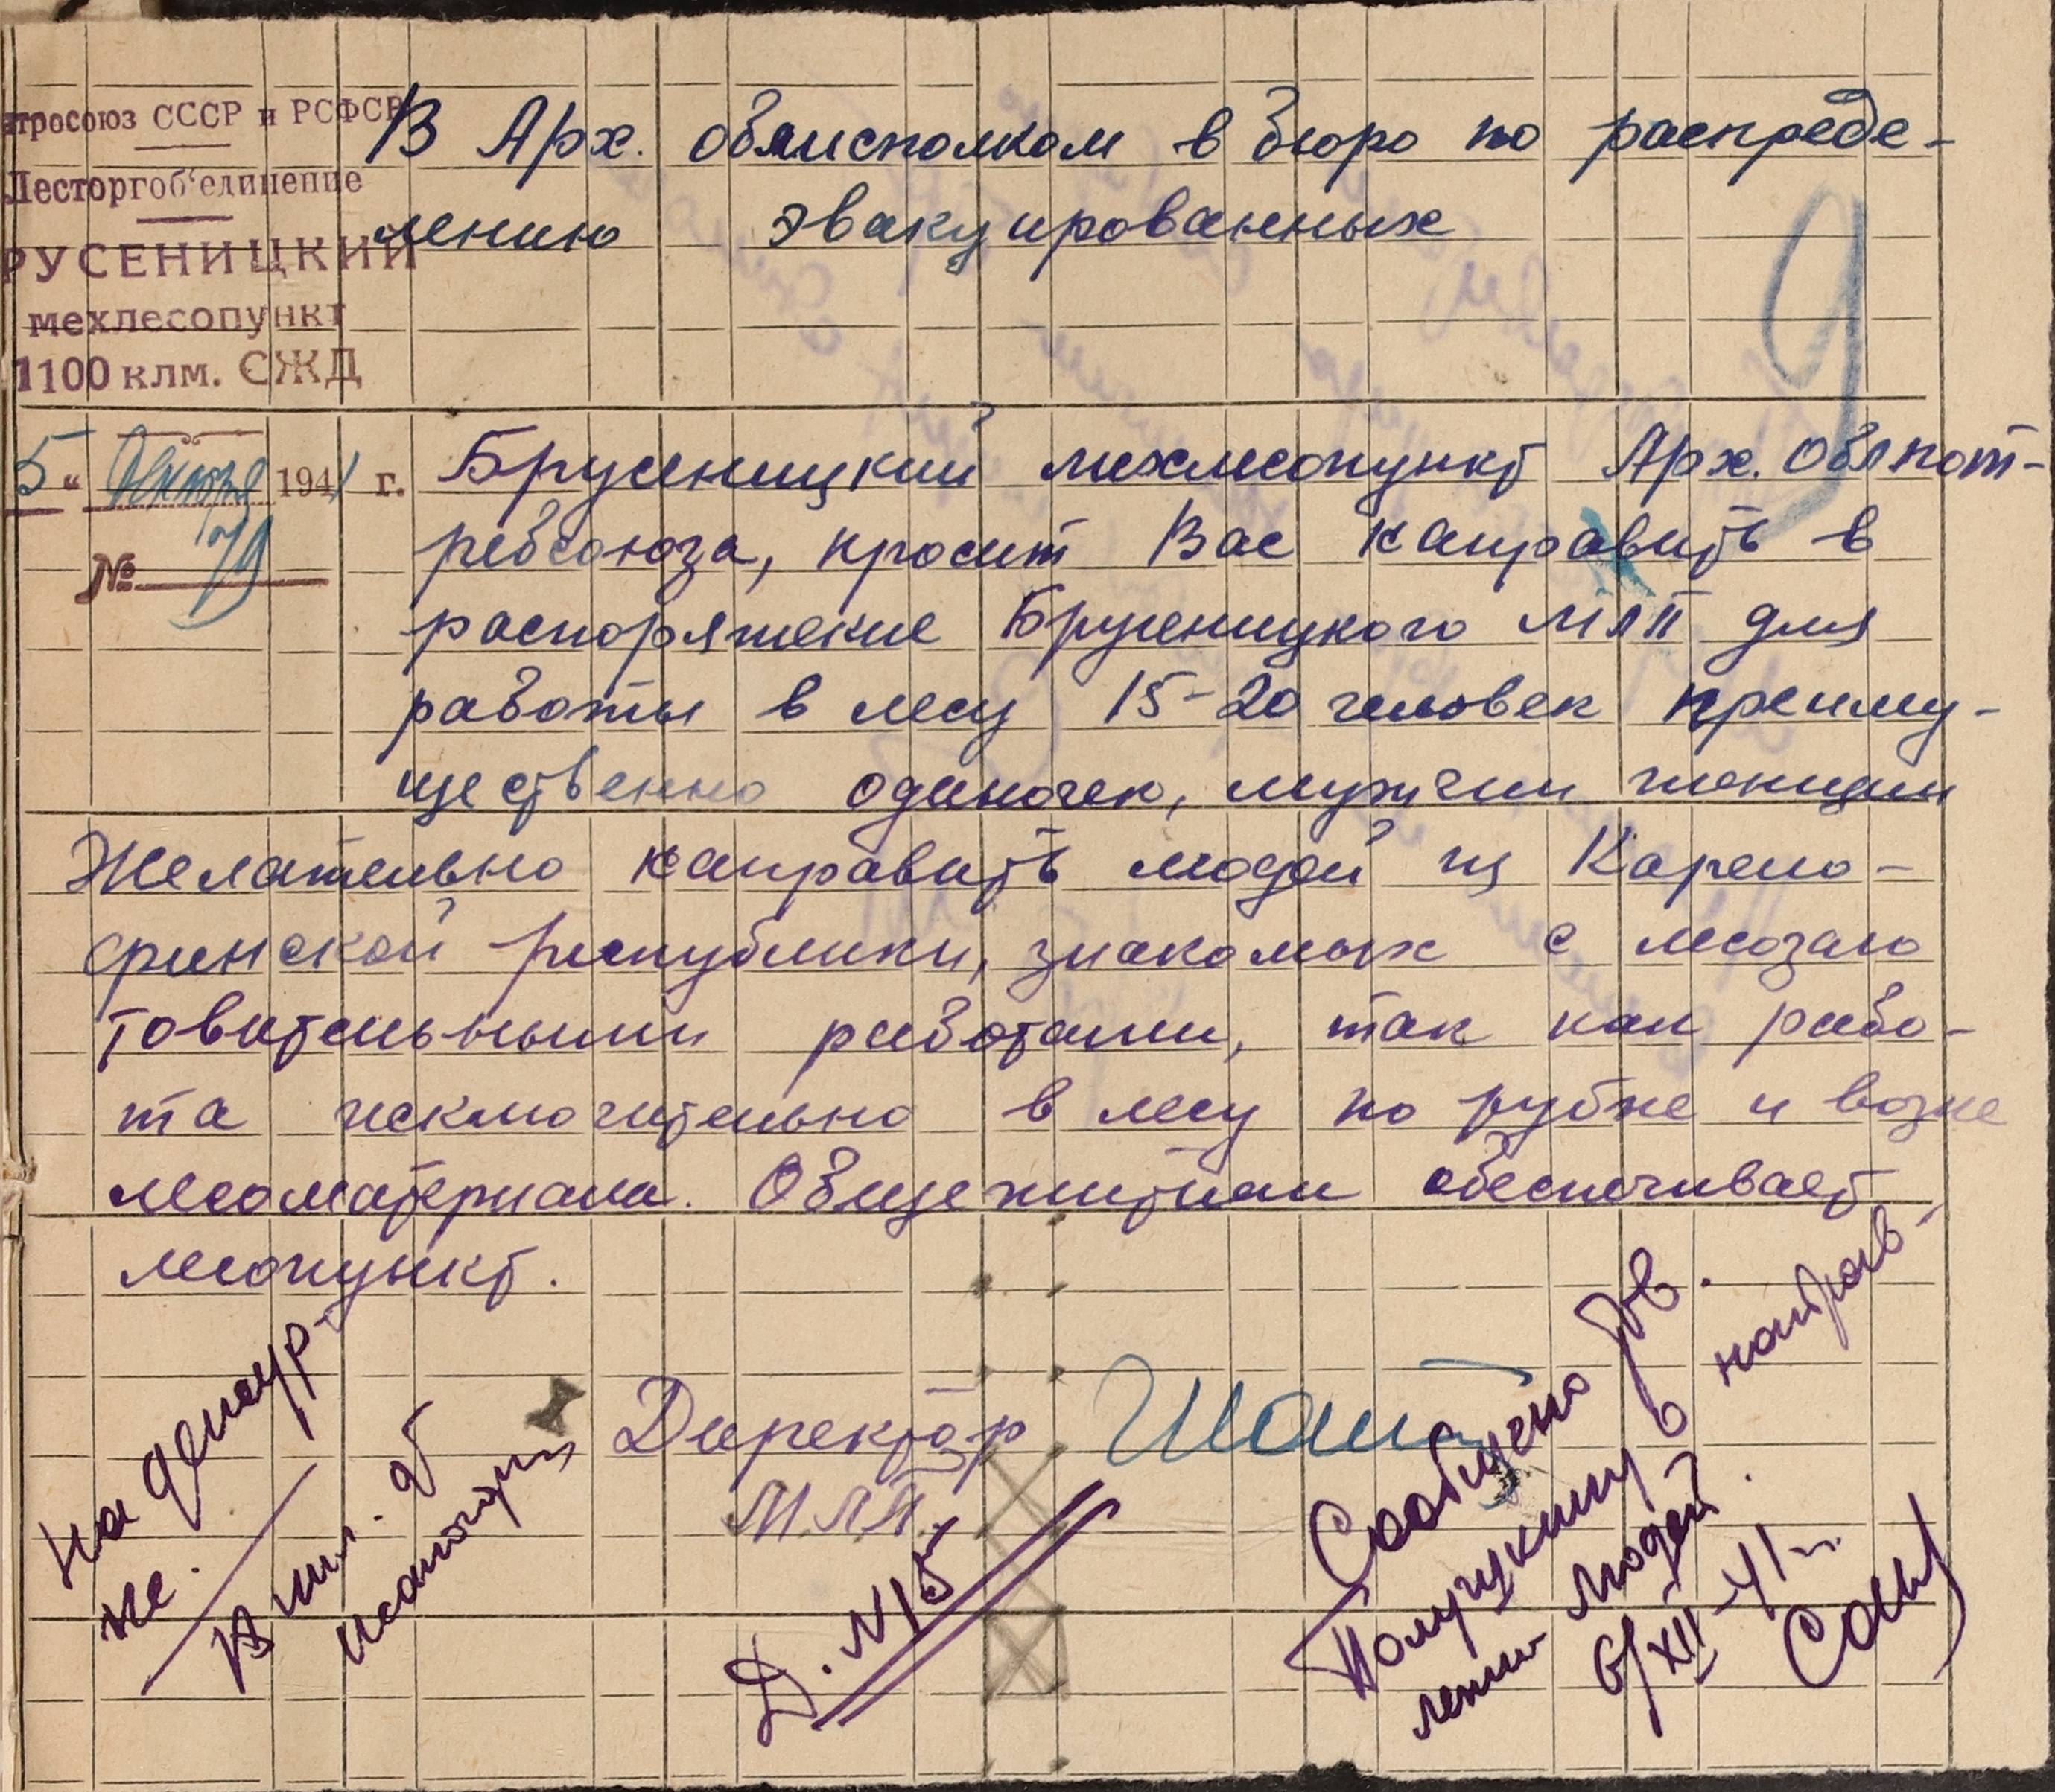 тросоюз СССР и РСФСР
Лесторгоб‘единение
РУСЕНИЦКИЙ
мехлесопункт
1100 клм. СЖД
5 “ декября 1941 г.
№ 79
В Арх. облисполком в бюро по распреде-
лению эвакуированных
9
Брусеницкий мехлесопункт Арх. облпот-
ребсоюза, просит Вас направить в
распоряжение Брусеницкого МЛП для
работы в лесу 15-20 человек преиму-
щественно одиночек, мужчин женщин
Желательно направить людей из Карело-
финской республики, знакомых с лесозаго
товительными работами, так как рабо-
та исключительно в лесу по рубке и возке
лесоматериала. Общежитием обеспечивает
лесопункт.
Директор
М.Л.П.
На
же.
Д. №5
Сообщено тов.
Полушкину о направ-
лении людей.
6/XII-41 г.